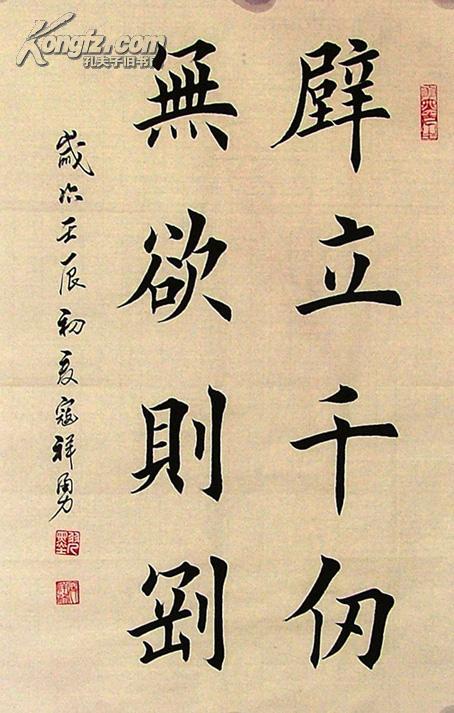 Kongfz.com
孔夫子旧书网
辟立千仞
無欲則剛
歲次壬辰初夏寇祥勇